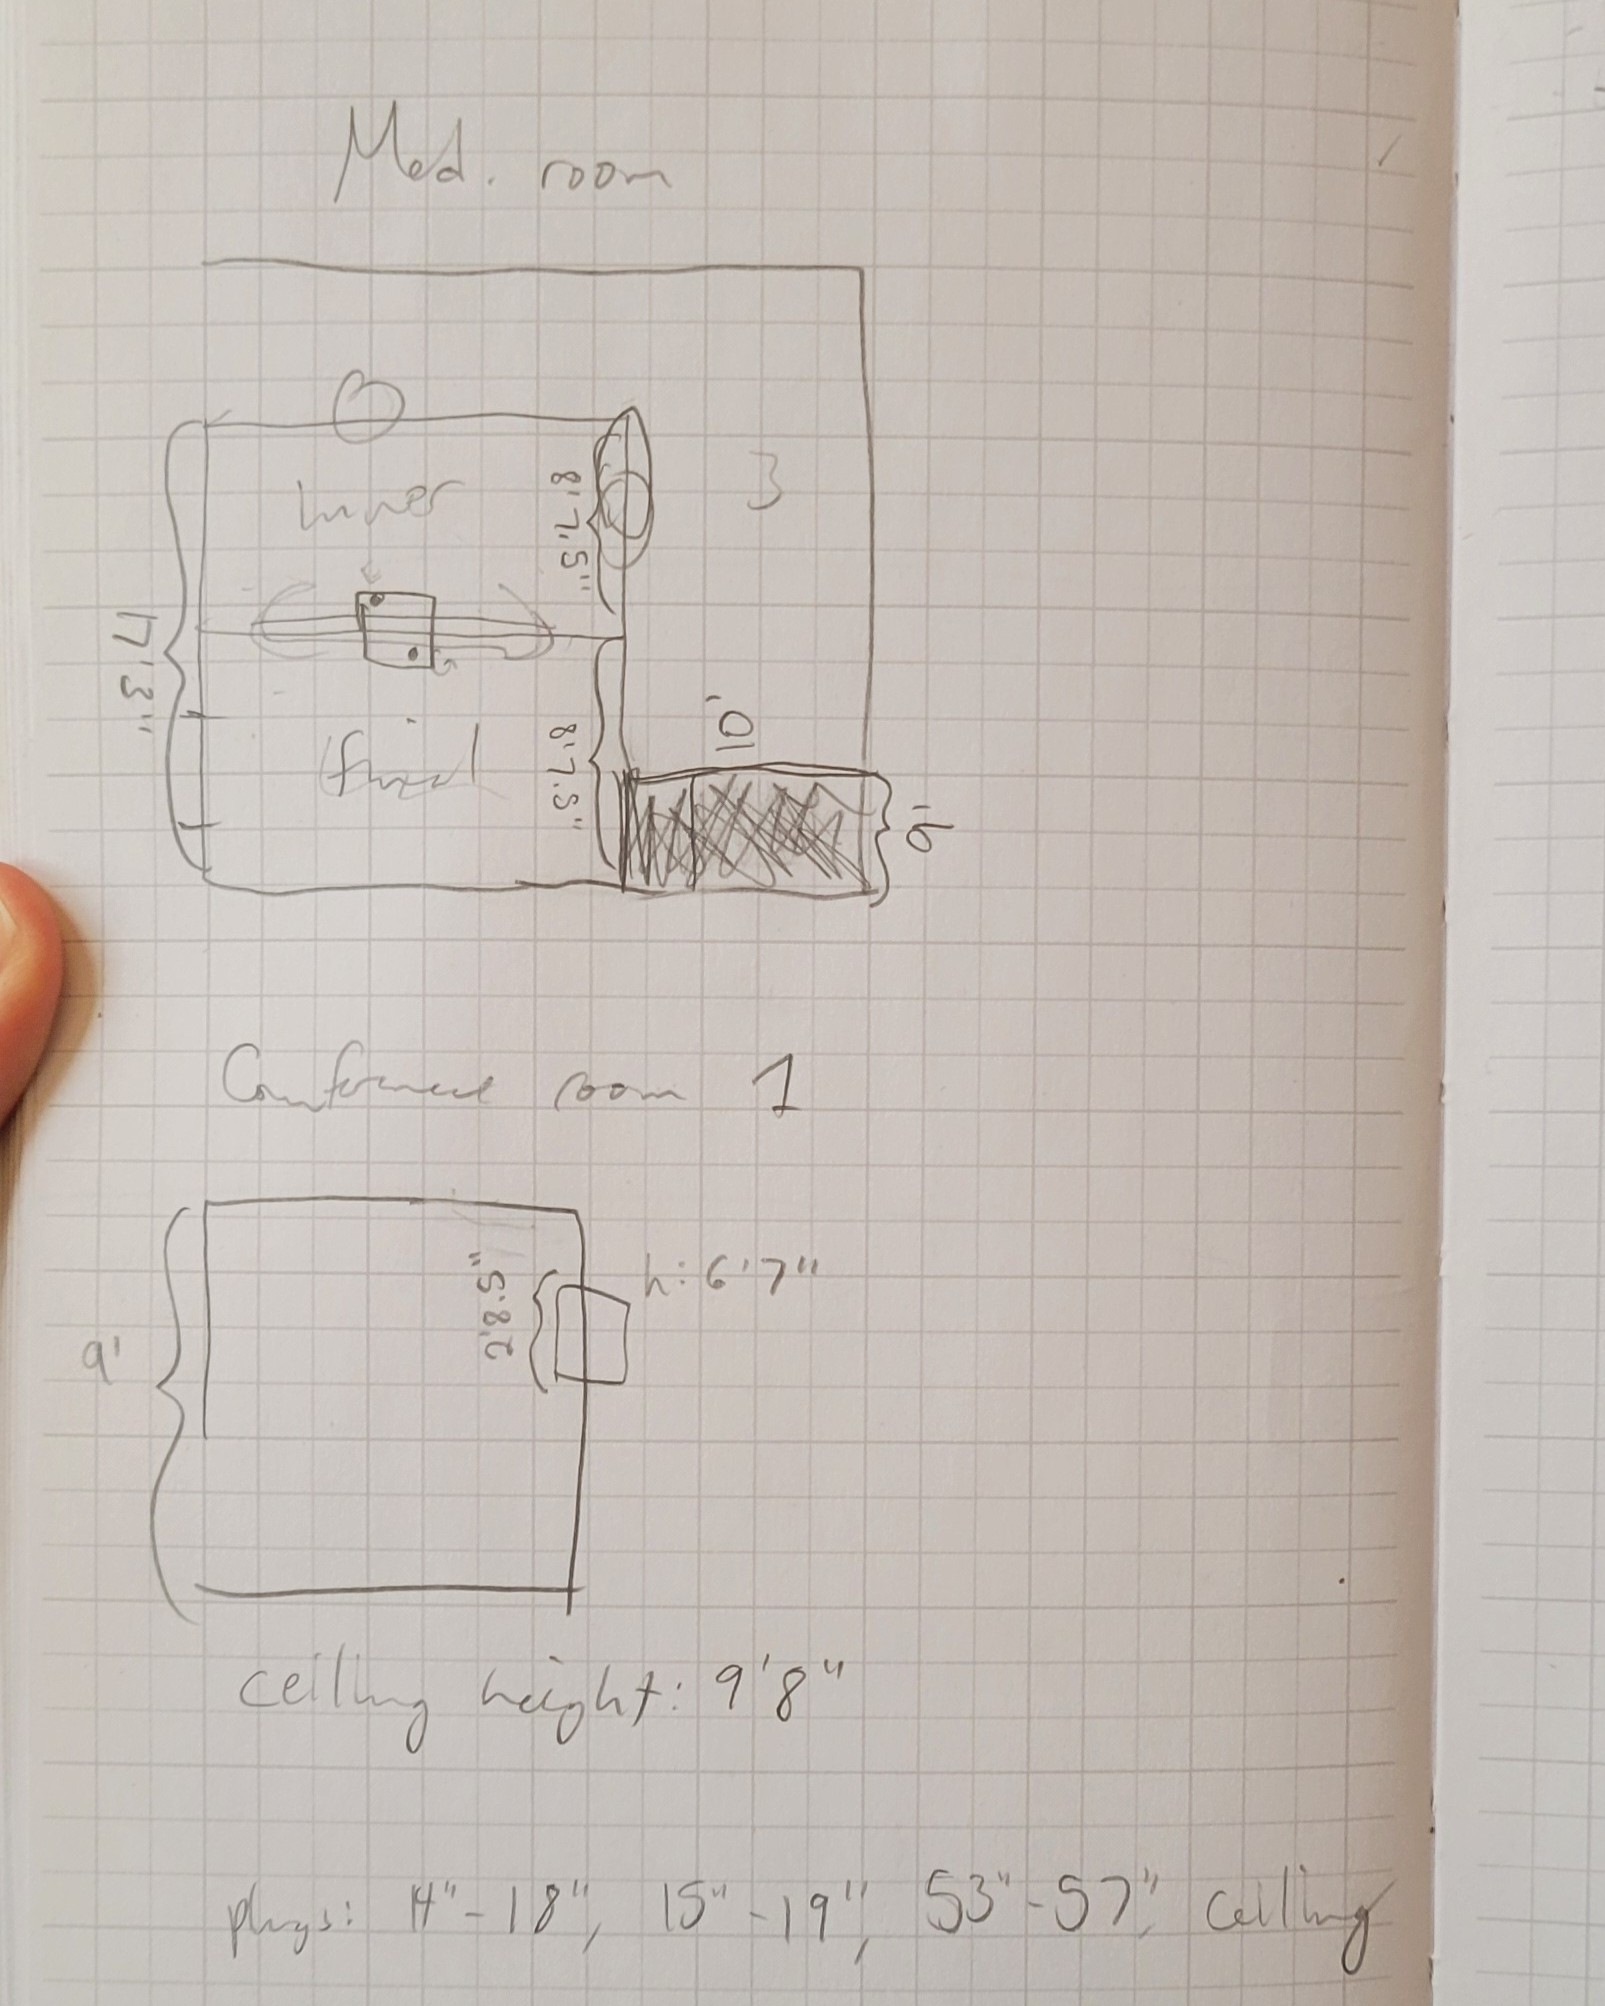 Med. room
Inner
3
8'7.5"
17'3"
10'
8'7.5"
6'
Conference room 1
h: 6'7"
2'8.5"
9'
ceiling height: 9'8"
plugs: 14"-18", 15"-19", 53"-57", ceiling